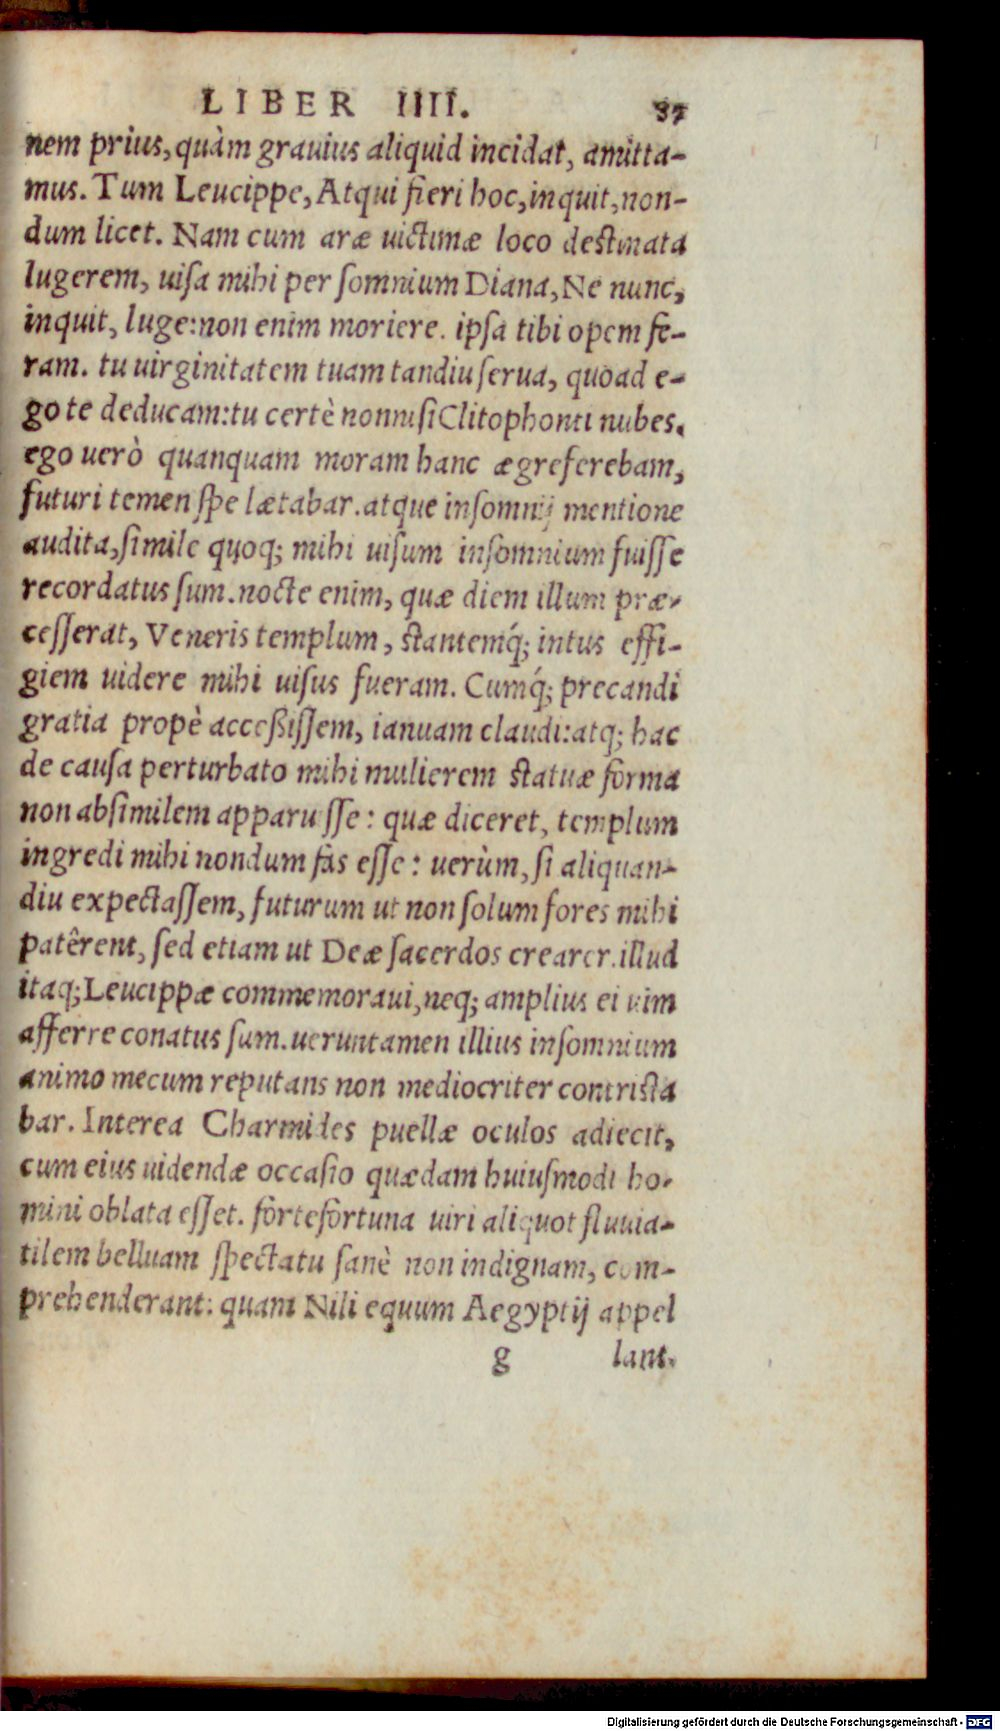 LIBER IIII. 87
nem prius, quàm grauius aliquid incidat, amitta-
mus. Tum Leucippe, Atqui fieri hoc, inquit, non-
dum licet. Nam cum aræ uictimæ loco destinata
lugerem, uisa mihi per somnium Diana, Ne nunc,
inquit, luge: non enim moriere. ipsa tibi opem fe-
ram. tu uirginitatem tuam tandiu serua, quoad e-
go te deducam: tu certè nonnisi Clitophonti nubes.
ego uerò quanquam moram hanc ægreferebam,
futuri temen spe lætabar. atque insomnij mentione
audita, simile quoq; mihi uisum insomnium fuisse
recordatus sum. nocte enim, quæ diem illum præ-
cesserat, Veneris templum, stantemq́; intus effi-
giem uidere mihi uisus fueram. Cumq́; precandi
gratia propè accessissem, ianuam claudi: atq; hac
de causa perturbato mihi mulierem statuæ forma
non absimilem apparuisse: quæ diceret, templum
ingredi mihi nondum fas esse: uerùm, si aliquan-
diu expectassem, futurum ut non solum fores mihi
patêrent, sed etiam ut Deæ sacerdos crearer. illud
itaq; Leucippæ commemoraui, neq; amplius ei uim
afferre conatus sum. ueruntamen illius insomnium
animo mecum reputans non mediocriter contrista
bar. Interea Charmides puellæ oculos adiecit,
cum eius uidendæ occasio quædam huiusmodi ho-
mini oblata esset. fortefortuna uiri aliquot fluuia-
tilem belluam spectatu sanè non indignam, com-
prehenderant: quam Nili equum Aegyptij appel
g lant.
Digitalisierung gefördert durch die Deutsche Forschungsgemeinschaft - DFG